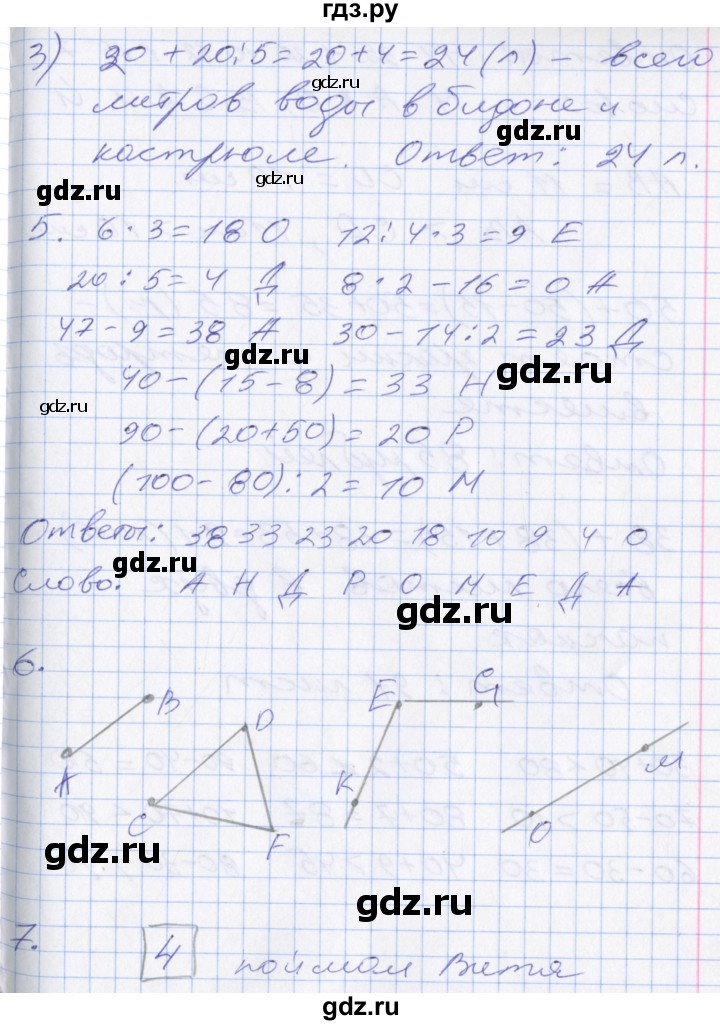 гдз.ру
3) 20 + 20 : 5 = 20 + 4 = 24 (л) – всего
литров воды в бидоне и
кастрюле. Ответ: 24 л.
gdz.ru
gdz.ru
gdz.ru
5. 6 · 3 = 18 О 12 : 4 · 3 = 9 Е
20 : 5 = 4 Д 8 · 2 – 16 = 0 А
gdz.ru
47 – 9 = 38 А 30 – 14 : 2 = 23 Д
gdz.ru
gdz.ru
40 – (15 – 8) = 33 Н
gdz.ru
90 – (20 + 50) = 20 Р
(100 – 80) : 2 = 10 М
Ответы: 38 33 23 20 18 10 9 4 0
gdz.ru
Слово: А Н Д Р О М Е Д А
gdz.ru
6.
B
A
D
C
F
E
G
K
M
O
gdz.ru
gdz.ru
7. 4 поймал Витя
gdz.ru
gdz.ru
гдз.ру